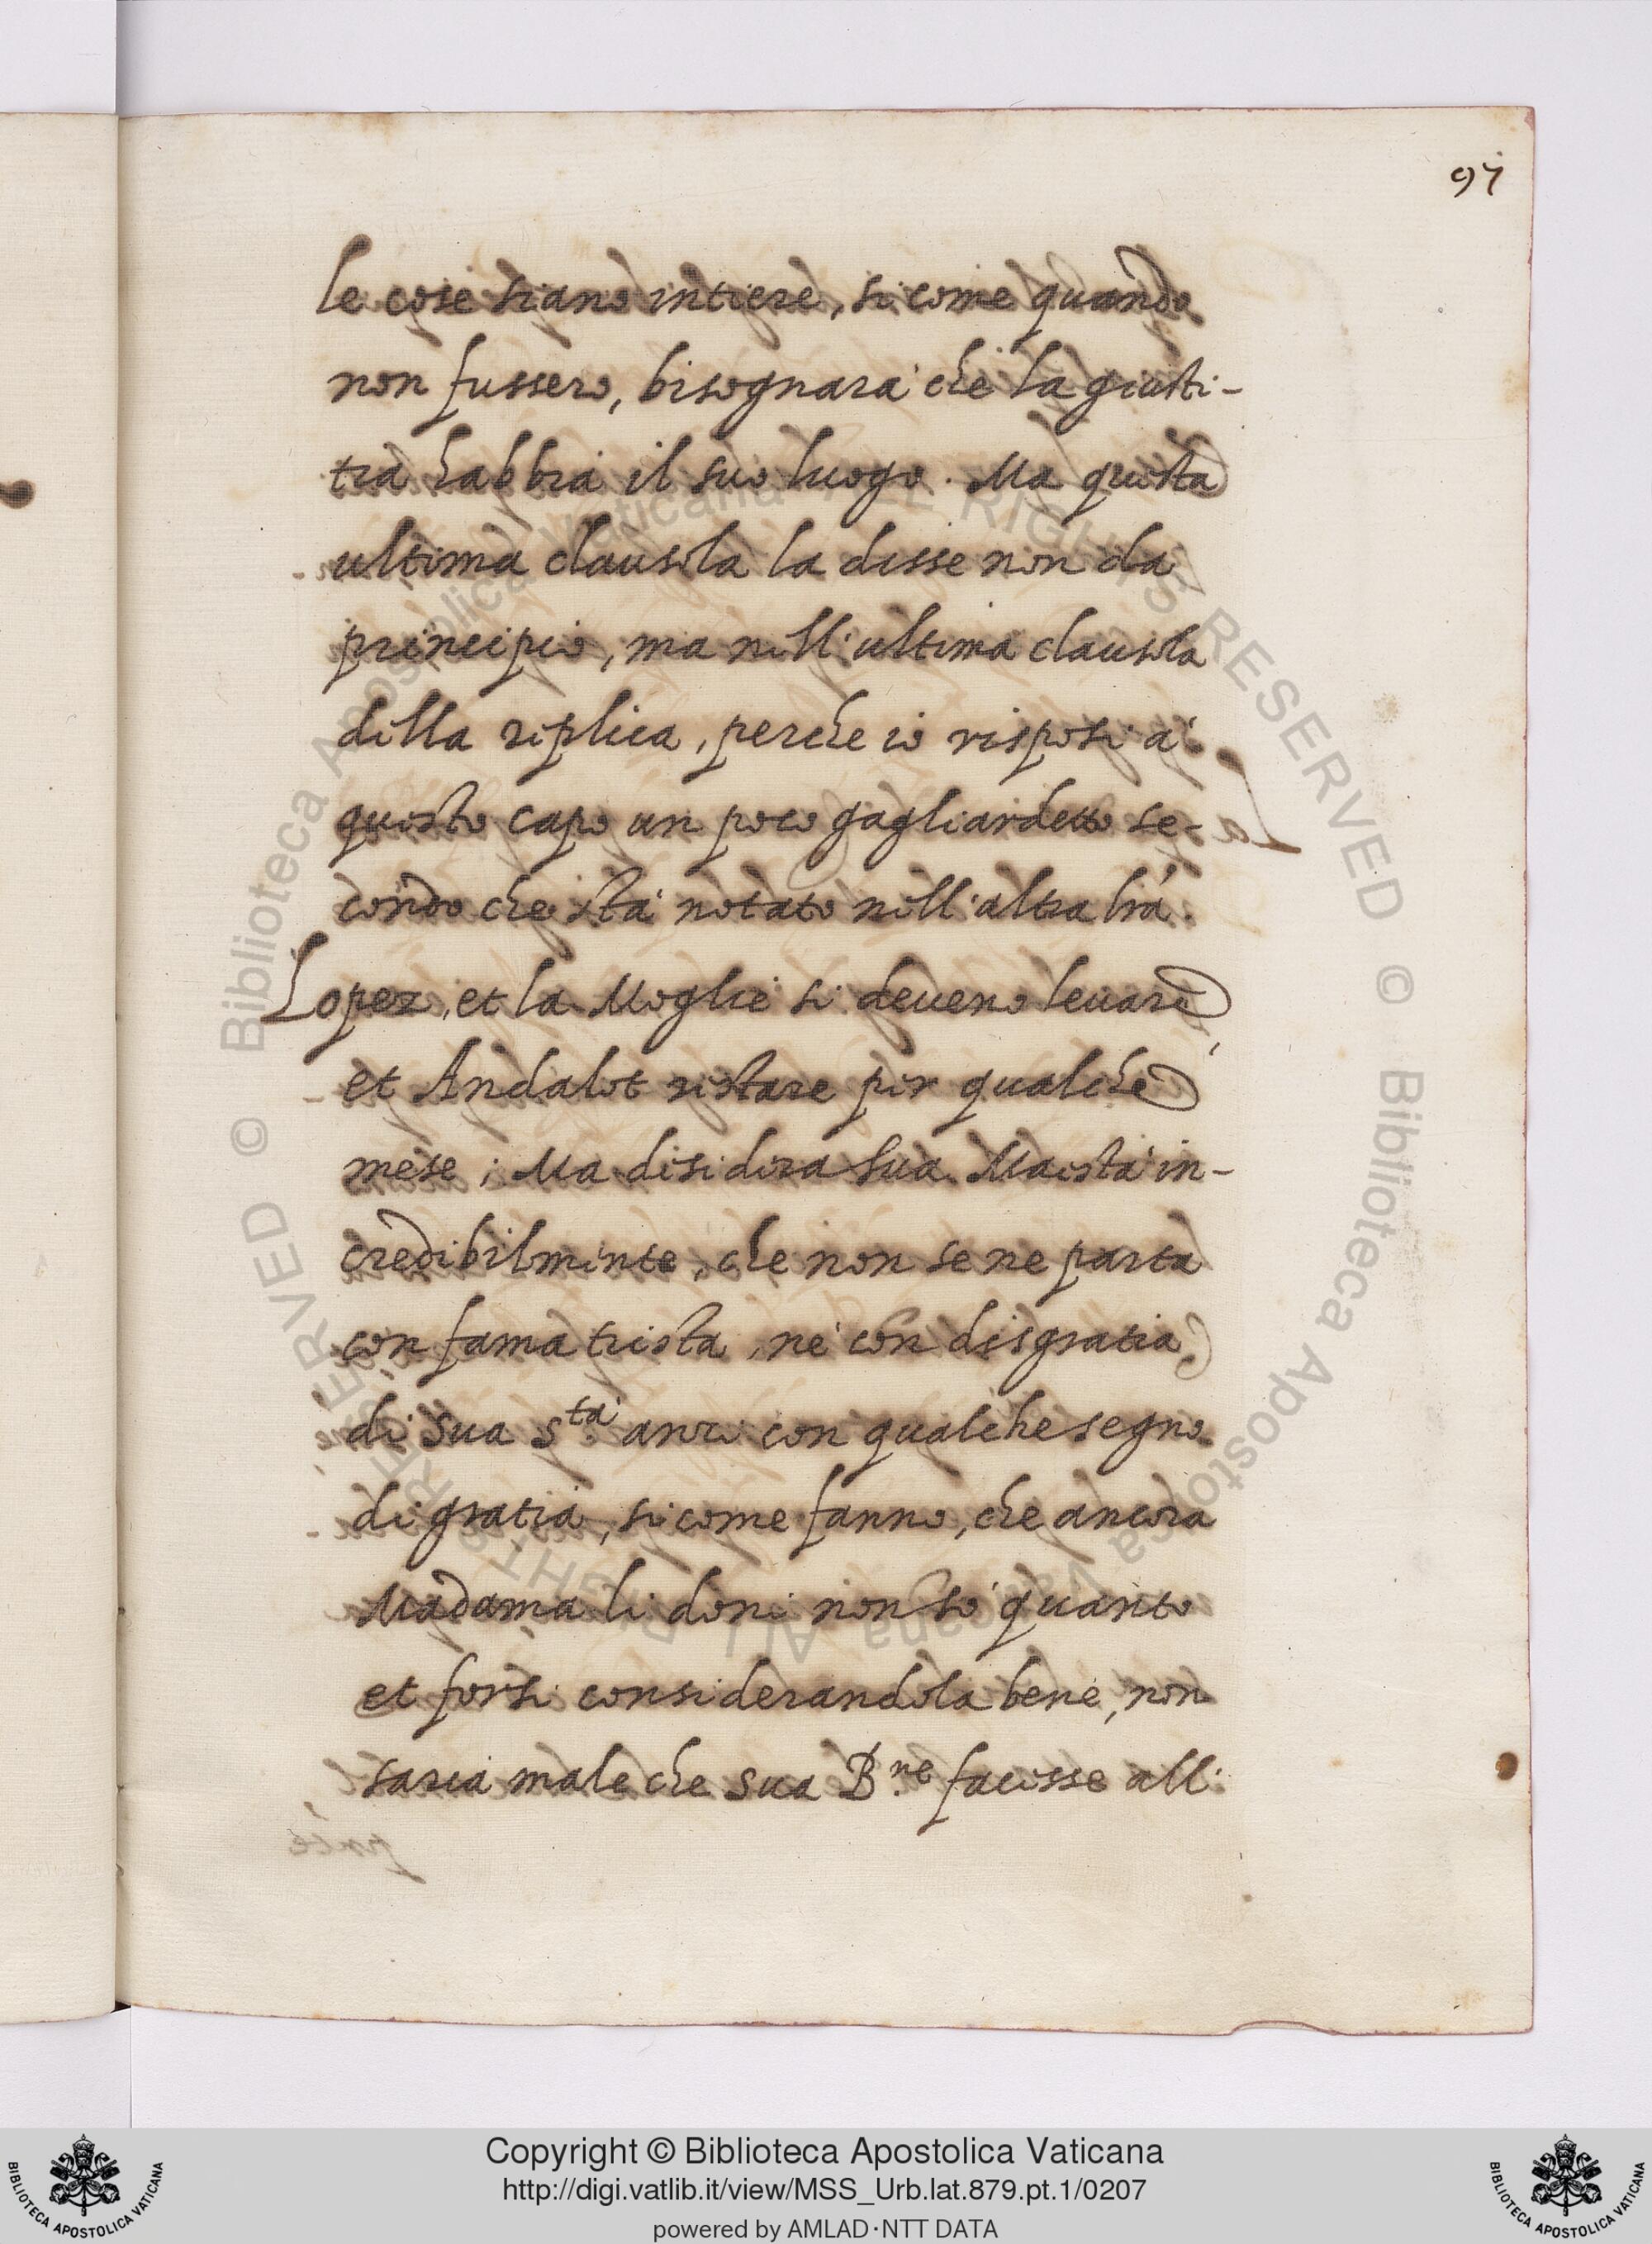 97
le cose siano intiere, si come quando
non fussero, bisognarà che la giusti-
tia habbia il suo luogo. Ma questa
ultima clausola la disse non da
principio, ma nell'ultima clausola
della replica, perche io risposi a'
questo capo un poco gagliardetto se-
condo che stà notato nell'altra lra.
Lopez, et la Moglie si deveno levare,
et Andalot restare per qualche
mese; Ma desidera Sua Maestà in-
credibilmente, che non se ne parta
con fama trista, nè con disgratia
di Sua S.tà anzi con qualche segno
di gratia, si come fanno, che ancora
Madama li doni non sò quanto
et forsi considerandola bene, non
saria male che sua B.ne facesse all'
Copyright © Biblioteca Apostolica Vaticana
http://digi.vatlib.it/view/MSS_Urb.lat.879.pt.1/0207
powered by AMLAD·NTT DATA